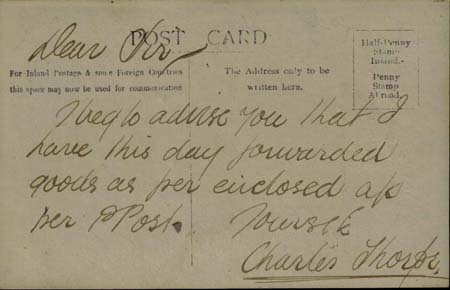 POST CARD
Dear Sir
For Inland Postage & some Foreign Countries
this space may now be used for communication
The Address only to be
written here.
Half-Penny
Stamp
Inland.-
Penny
Stamp
Abroad.
I beg to advise you that I
have this day forwarded
goods as per enclosed a/c
per P Post. Yours &c
Charles Thorpe